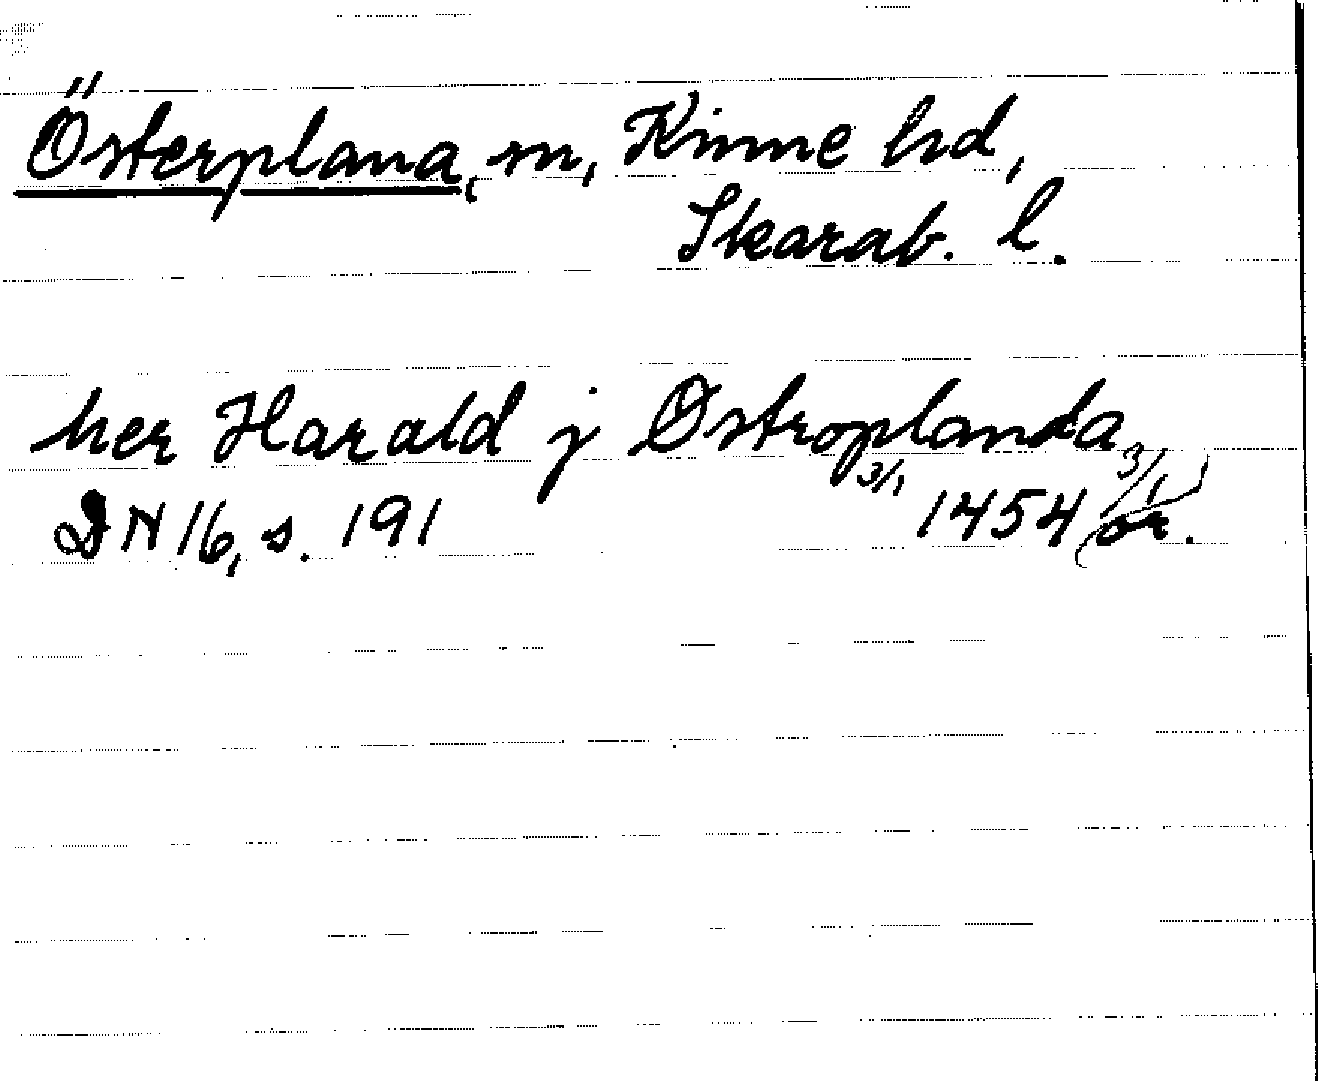 Österplana, sn, Kinne hd,
Skarab. l.
her Harald j Østroplanda
DN 16, s. 191 3/1 1454 3/1 or.